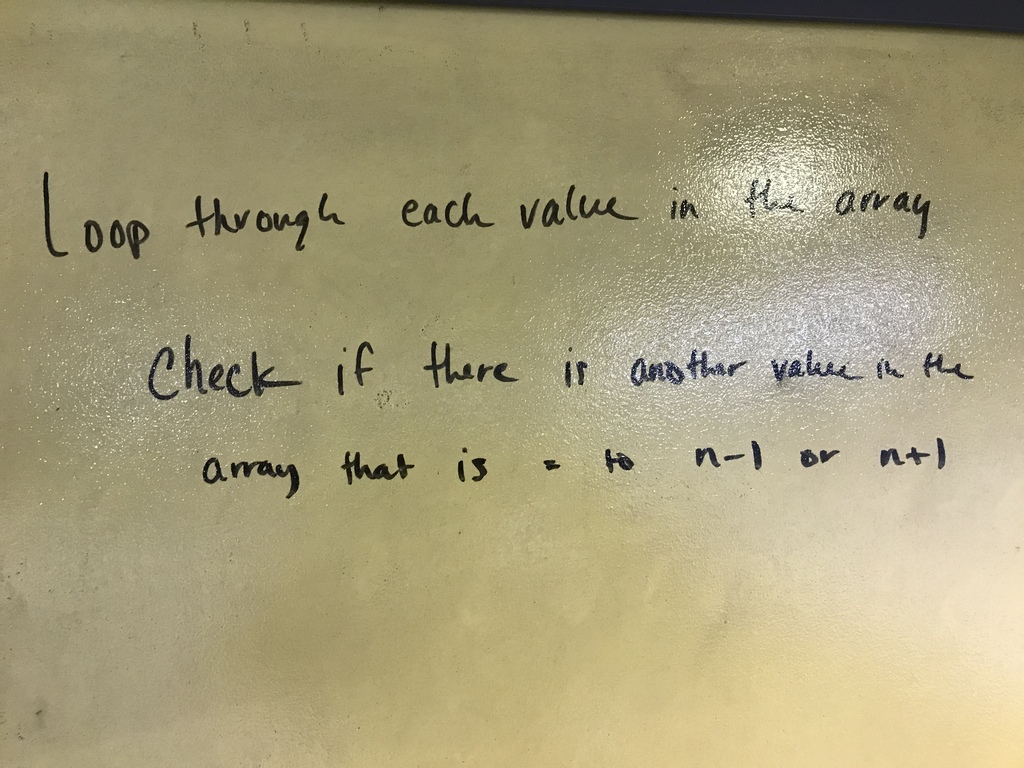 Loop through each value in the array
Check if there is another value in the
array that is = to n-1 or n+1